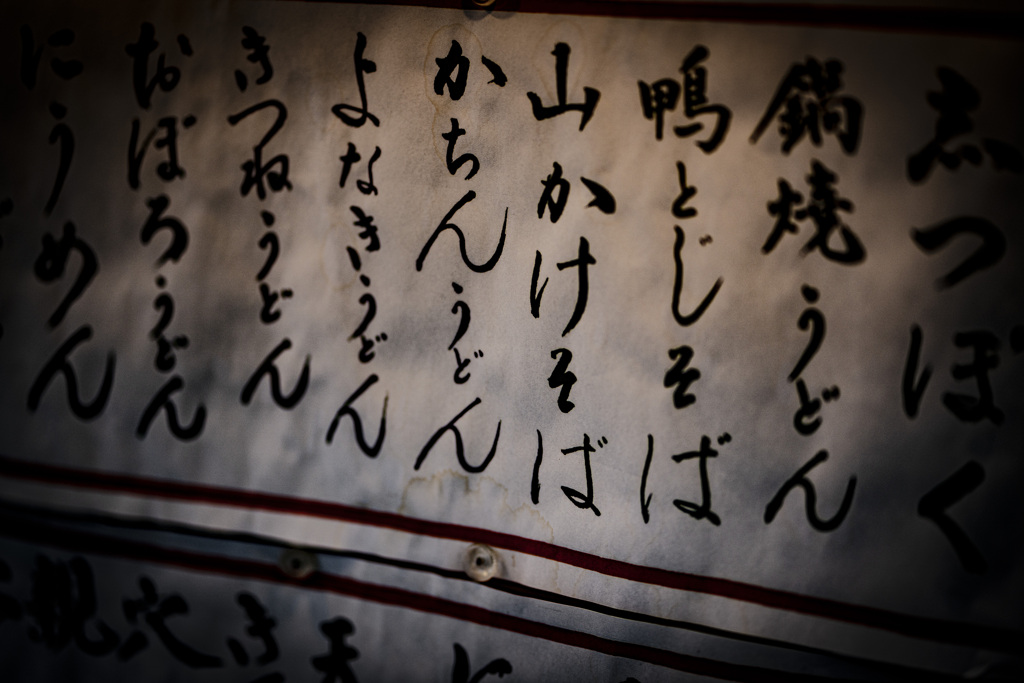 志つぽく
鍋燒うどん
鴨とじそば
山かけそば
かちんうどん
よなきうどん
きつねうどん
おぼろうどん
にうめん